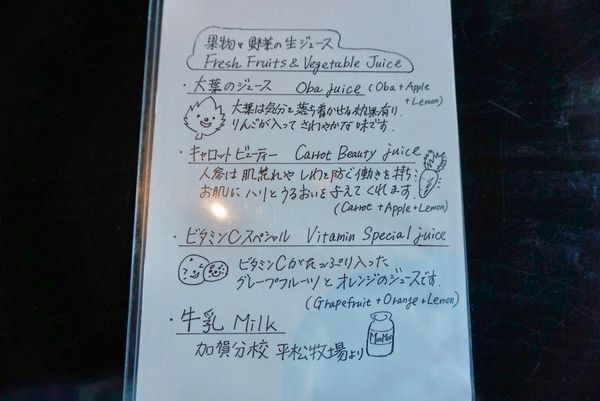 果物と野菜の生ジュース
Fresh Fruits & Vegetable Juice
・大葉のジュース Oba juice (Oba + Apple + Lemon)
大葉は気分を落ち着かせる効果有り。
りんごが入ってさわやかな味です。
・キャロットビューティー Carrot Beauty juice
人参は肌荒れやしわを防ぐ働きを持ち
お肌にハリとうるおいを与えてくれます。
(Carrot + Apple + Lemon)
・ビタミンCスペシャル Vitamin Special juice
ビタミンCがたっぷり入った
グレープフルーツとオレンジのジュースです。
(Grapefruit + Orange + Lemon)
・牛乳 Milk
加賀分校 平松牧場より
MooMoo